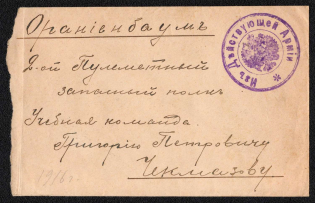 Ораніенбаумъ
2-ой Пулеметный
запасный полкъ
Учебная команда
Григорію Петровичу
Чекмазову
1916 г.
Изъ Дѣйствующей Арміи